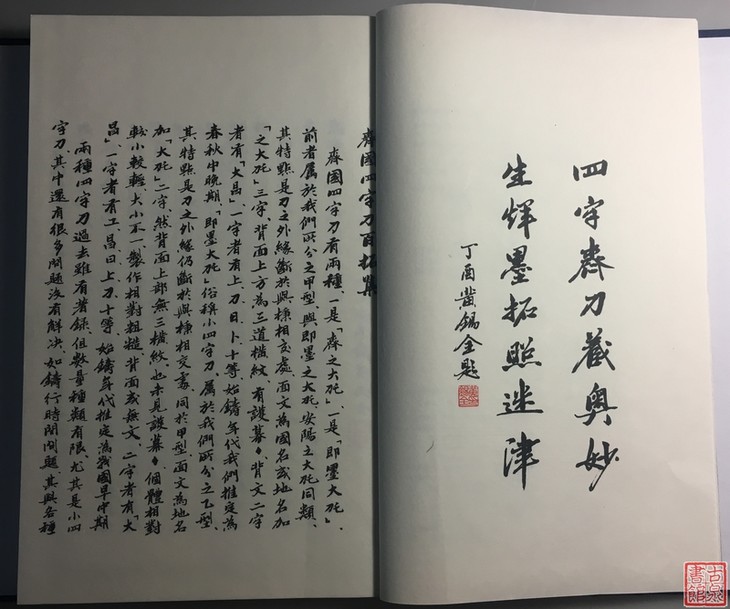 四字斉刀藏奧妙
生煇墨拓照迷津
丁酉黃錫全題
齊國四字刀百拓集
齊國四字刀有兩種、一是「齊之大厇」、一是「即墨大厇」、
前者屬於我們所分之甲型、與即墨之大厇、安陽之大厇同類、
其特點是刀之外緣斷於與柄相交處、面文為國名或地名加
「之大厇」三字、背面上方為三道橫紋、有護幕♦、背文二字
者有「大昌」、一字者有上、刀、日、卜、十等、始鑄年代我們推定為
春秋中晚期「即墨大厇」俗稱小四字刀、屬於我們所分之乙型、
其特點是刀之外緣仍斷於與柄相交處、同於甲型、面文為地名
加「大厇」二字、然背面上部無三橫紋、也未見護幕♦、個體相對
較小較輕、大小不一、製作相對粗糙、背面或無文、二字者有「大
昌」、一字者有工、昌、日、上、刀、十等、始鑄年代推定為戰國早中期
兩種四字刀過去雖有著錄、但數量種類有限、尤其是小四
字刀、其中還有很多問題沒有解決、如鑄行時間問題、其與各種
古泉書館